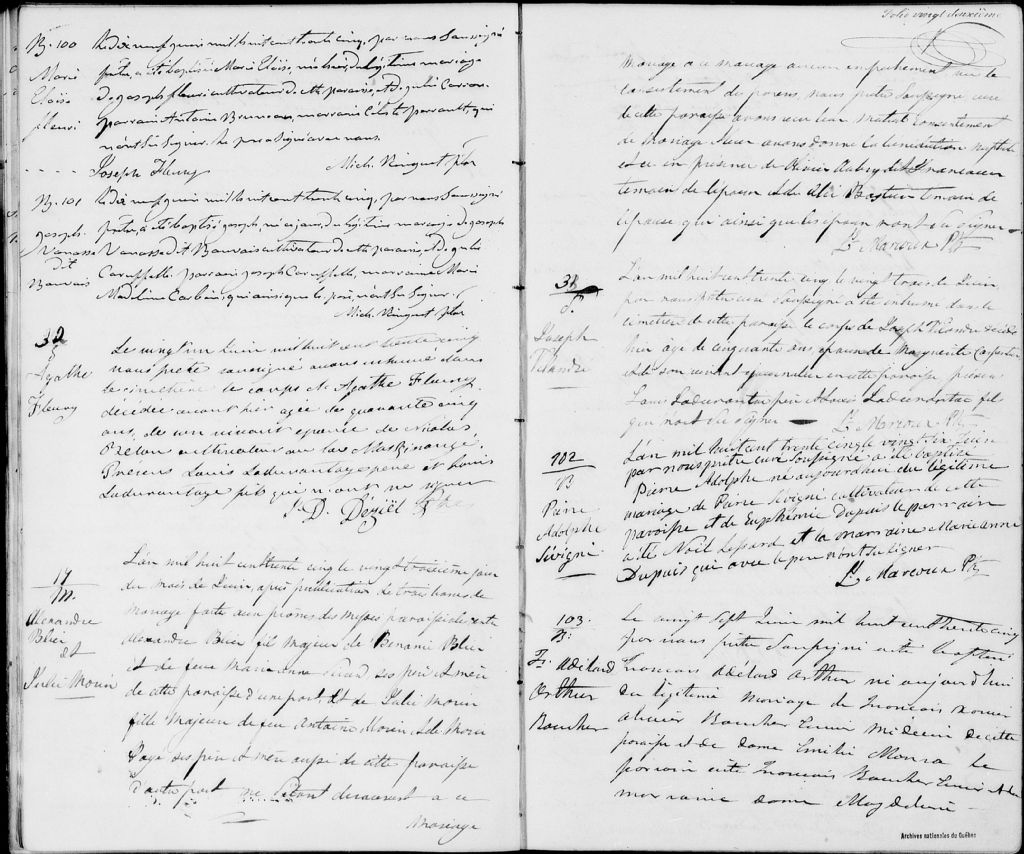 B. 100
Marie
Eloïse
fleuri
Le dix neuf juin mil huit cent trente cinq, par nous Soussigné
prêtre, a été baptisée Marie Eloïse, née hier, du légitime mariage
de joseph fleuri cultivateur de cette paroisse, & de julie
parrain Antoine Bruneau, marraine Céleste parrault, qui
n'ont su signer. Le père signé avec nous
Joseph Fleury Mich. Ringuet ptre
B. 101
joseph
Vanasse
dit
Bauvais
Le dix neuf juin mil huit cent trente cinq, par nous Soussigné
prêtre, a été baptisé joseph, né ce jour, du légitime mariage de joseph
Vanasse dit Bauvais cultivateur de cette paroisse, & de julie
parrain joseph marraine Marie
Madeline qui ainsi que le père n'ont su signer
Mich. Ringuet ptre
32
S
Agathe
Fleury
Le vingt un Juin mil huit cent trente cinq
nous prêtre soussigné avons inhumé dans
le cimetière le corps de Agathe Fleury
décédée avant hier agée de quarante cinq
ans, de son vivant épouse de Nicolas
cultivateur au lac Maskinongé.
Présens Louis Ladurantaye père et Louis
Ladurantaye fils qui n'ont su signer
D. Déziel Ptre
14
M.
Alexandre
Bleu
et
Julie Morin
L'an mil huit cent trente cinq le vingt troisième jour
du mois de Juin, après publication de trois bans de
mariage faite aux prônes des messes paroissiales entre
Alexandre Bleu fils majeur de Benamie Bleu
et de feue Marie Anne ses père et mère
de cette paroisse d'une part, Et de Julie Morin
fille majeure de feu Antoine Morin & de Marie
Pagé ses père et mère aussi de cette paroisse
d'autre part ne s'étant découvert a ce
mariage
Folio vingt deuxième
mariage a ce mariage aucun empêchement vu le
consentement de parens, nous prêtre Soussigné curé
de cette paroisse avons reçu leur mutuel consentement
de Mariage & leur avons donné la bénédiction nuptiale
et ce en présence de Olivier Aubry
témoin de l'époux & de témoin de
l'épouse qui ainsi que les époux n'ont su signer
L. Marcoux Ptre
S.
Joseph
L'an mil huit cent trente cinq le vingt trois de Juin,
par nous prêtre curé Soussigné a été inhumé dans le
cimetière de cette paroisse le corps de Joseph décédé
hier agé de cinquante ans époux de Marguerite
& de son vivant en cette paroisse présens
Louis Ladurantaye père & Louis Ladurantaye fils
qui n'ont su signer L. Marcoux Ptre
102
B
Pierre
Adolphe
Sévigné
L'an mil huit cent trente cinq le vingt six Juin
par nous prêtre curé Soussigné a été baptisé
Pierre Adolphe né aujourd'hui du légitime
mariage de Pierre Sévigné cultivateur de cette
paroisse et de Euphémie Dupuis le parrain
a été Noël Lessard et la marraine Marie Anne
Dupuis qui avec le père n'ont su signer
L. Marcoux Ptre
103.
B.
Fr. Adélard
Arthur
Boucher
Le vingt Sept Juin mil huit cent trente cinq
par nous prêtre Soussigné a été baptisé
François Adélard Arthur né aujourd'hui
du légitime mariage de François Xavier
Olivier Boucher Ecuier Médecin de cette
paroisse et de dame Emilie Le
parrain a été François Boucher Ecuier & la
marraine dame Magdeleine
Archives nationales du Québec